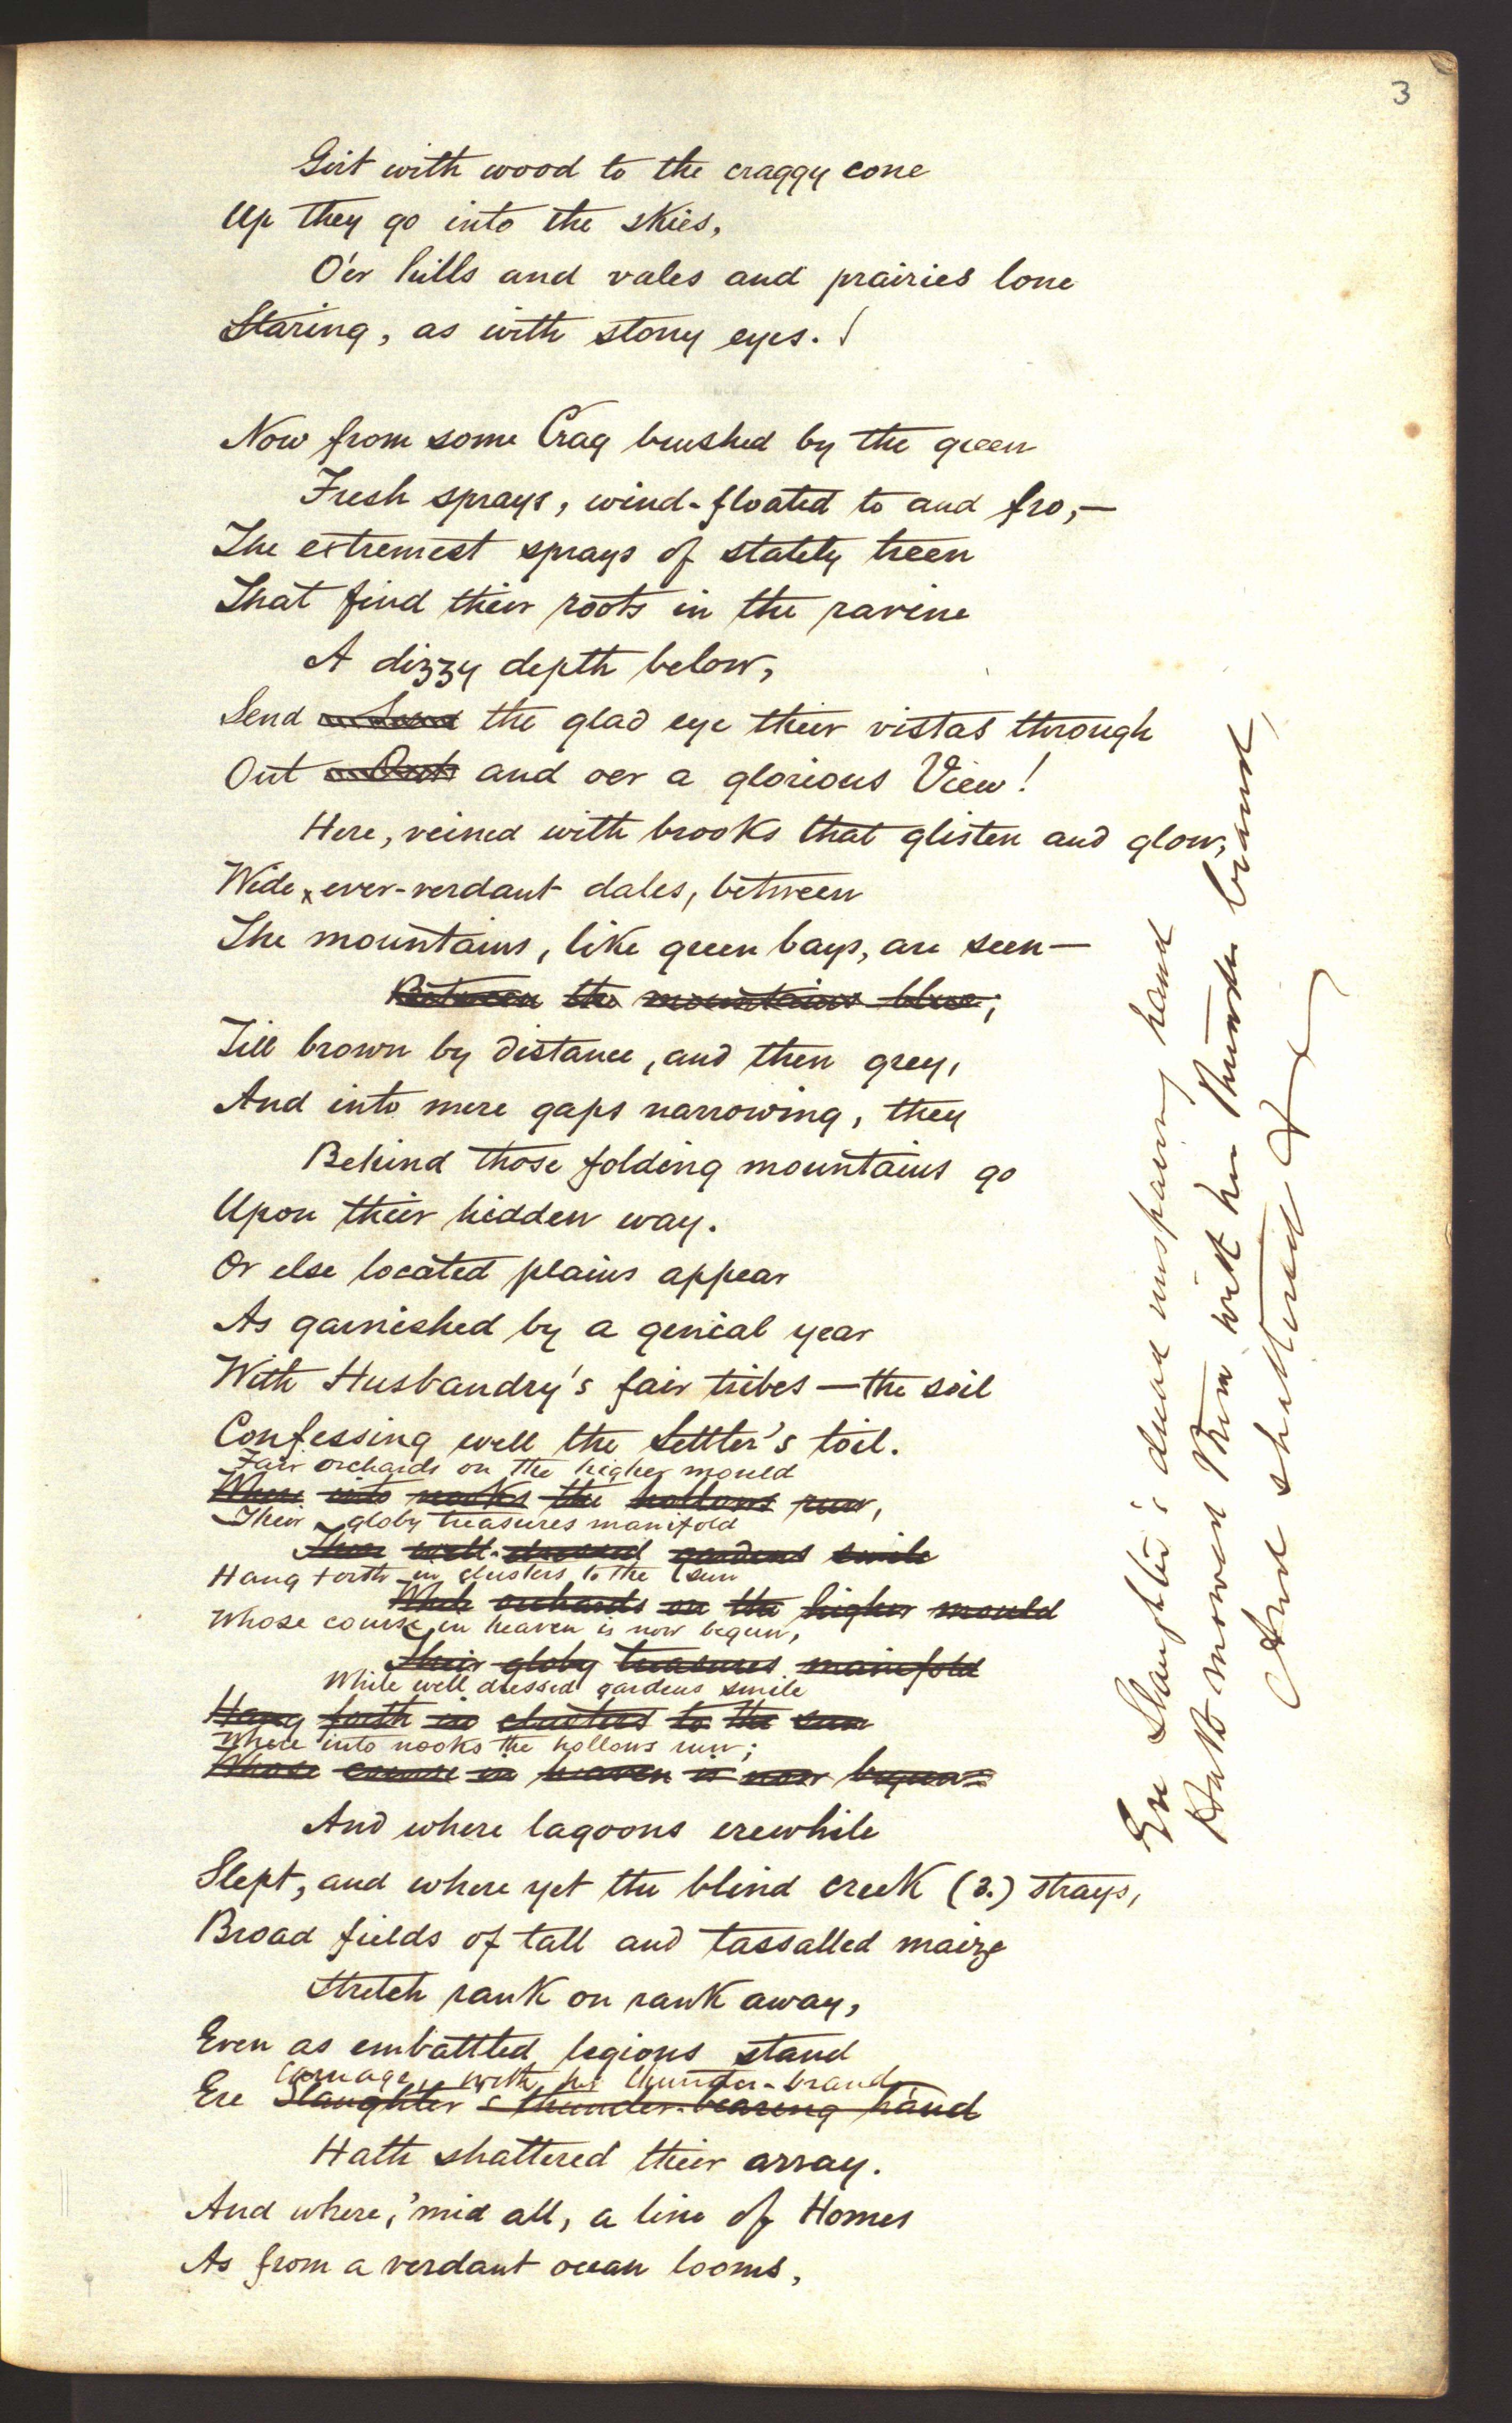 3
Girt with wood to the craggy cone
Up they go into the skies,
O'er hills and vales and prairies lone
Staring, as with stony eyes.!
Now from some Crag brushed by the green
Fresh sprays, wind-floated to and fro,—
The extremest sprays of stately treen
That find their roots in the ravine
A dizzy depth below,
Send Send the glad eye their vistas through
Out Out and oer a glorious View!
Here, veined with brooks that glisten and glow,
Wide, ever-verdant dales, between
The mountains, like green bays, are seen—
Between the mountains blue;
Till brown by distance, and then grey,
And into mere gaps narrowing, they
Behind those folding mountains go
Upon their hidden way.
Or else located plains appear
As garnished by a genial year
With Husbandry's fair tribes—the soil
Confessing well the Settler's toil.
Fair orchards on the higher mould
Where into nooks the hollows run,
Their globy treasures manifold
There well-dressed gardens smile
Hang forth in clusters to the sun
While orchards on the higher mould
Whose course in heaven is now begun,
Their globy treasures manifold
While well dressed gardens smile
Hang forth in clusters to the sun
Where into nooks the hollows run;
Whose course in heaven is now begun—
And where lagoons erewhile
Slept, and where yet the blind creek (3.) strays,
Broad fields of tall and tassalled maize
Stretch rank on rank away,
Even as embattled legions stand
Carnage, with his thunder-brand,
Ere Slaughter's thunder-bearing hand
Hath shattered their array.
And where, 'mid all, a line of Homes
As from a verdant ocean looms,
Ere Slaughter's dread unsparing hand
Hath mowed them with her thunder brand,
And shattered &